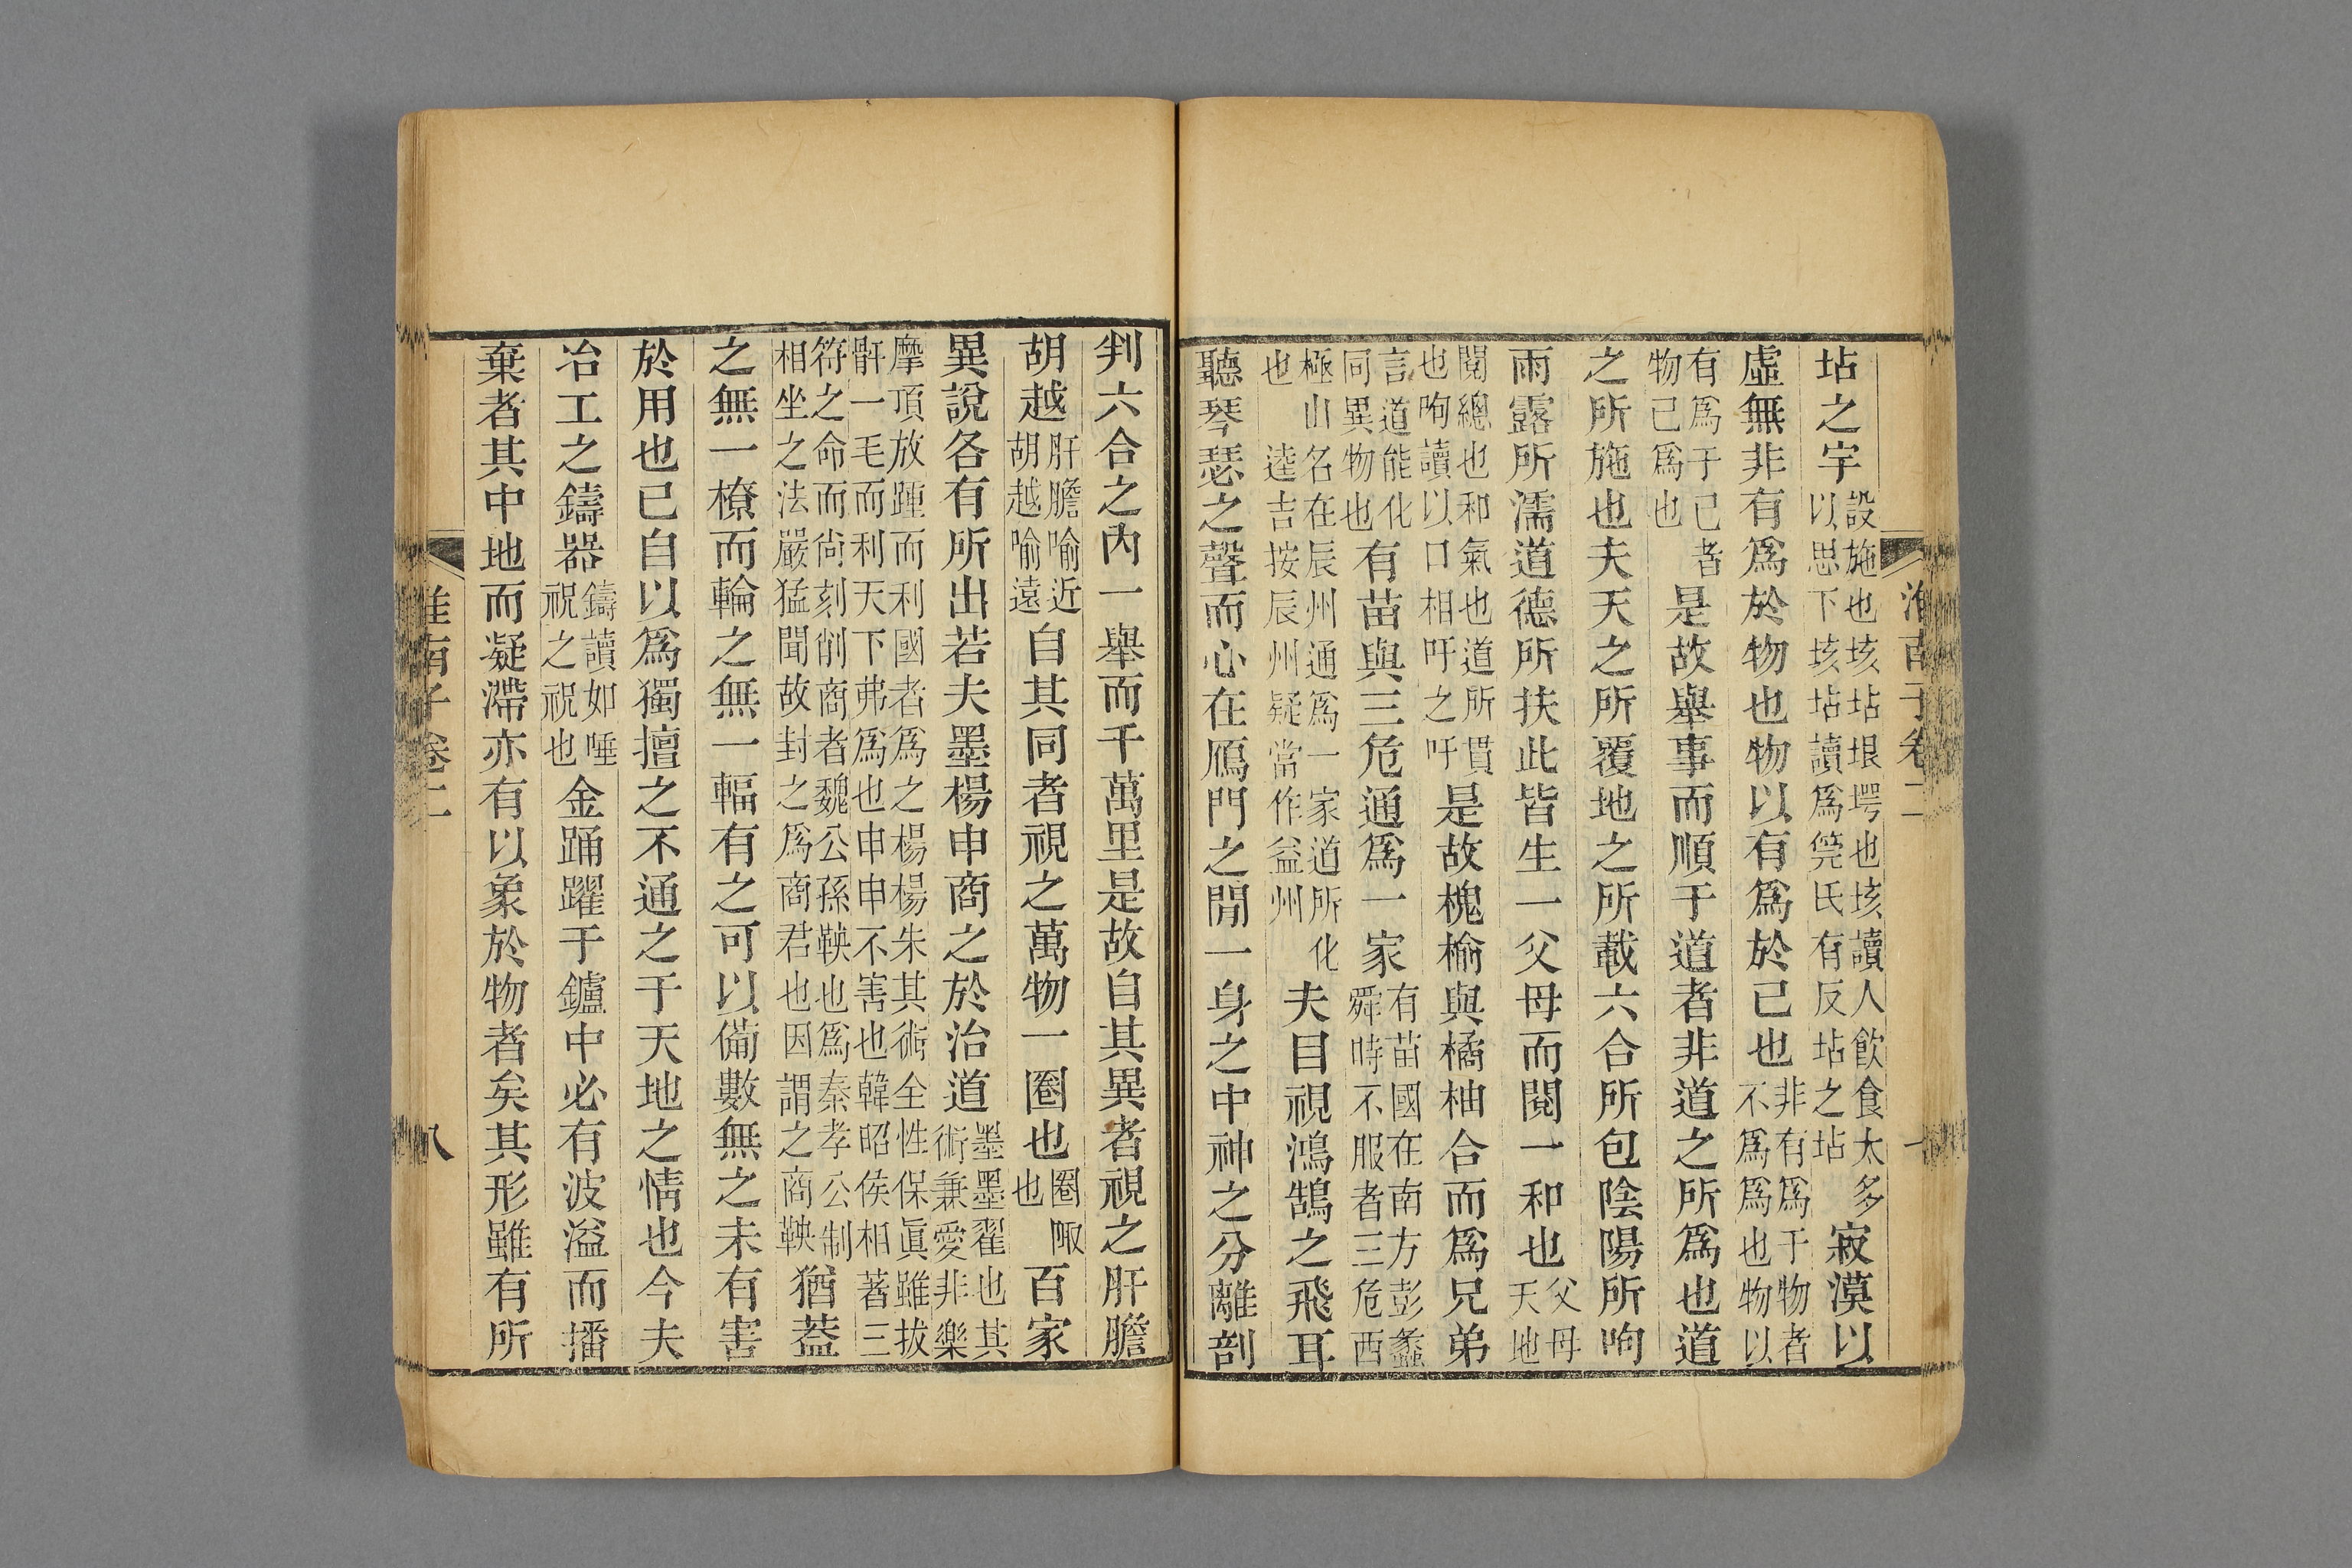 淮南子卷二
坫之宇設施也垓坫垠堮也垓讀人飲食太多以思下垓坫讀爲筦氏有反坫之坫寂漠以
虛無非有爲於物也物以有爲於己也非有爲于物者不爲爲也物以
有爲于己者物己爲也是故舉事而順于道者非道之所爲也道
之所施也夫天之所覆地之所載六合所包陰陽所呴
雨露所濡道德所扶此皆生一父母而閱一和也父母天地
閱總也和氣也道所貫也呴讀以口相吁之吁是故槐榆與橘柚合而爲兄弟
言道能化同異物也有苗與三危通爲一家有苗國在南方彭蠡舜時不服者三危西
極山名在辰州通爲一家道所化也 逵吉按辰州疑當作益州夫目視鴻鵠之飛耳
聽琴瑟之聲而心在鴈門之閒一身之中神之分離剖
判六合之內一舉而千萬里是故自其異者視之肝膽
胡越肝膽喻近胡越喻遠自其同者視之萬物一圈也圈陬也百家
異說各有所出若夫墨楊申商之於治道墨墨翟也其術兼愛非樂
摩頂放踵而利國者爲之楊楊朱其術全性保眞雖拔骭一毛而利天下弗爲也申申不害也韓昭侯相著三
符之命而尙刻削商者魏公孫鞅也爲秦孝公制相坐之法嚴猛聞故封之爲商君也因謂之商鞅猶蓋
之無一橑而輪之無一輻有之可以備數無之未有害
於用也己自以爲獨擅之不通之于天地之情也今夫
冶工之鑄器鑄讀如唾祝之祝也金踊躍于鑪中必有波溢而播
棄者其中地而凝滯亦有以象於物者矣其形雖有所
淮南子卷二
八